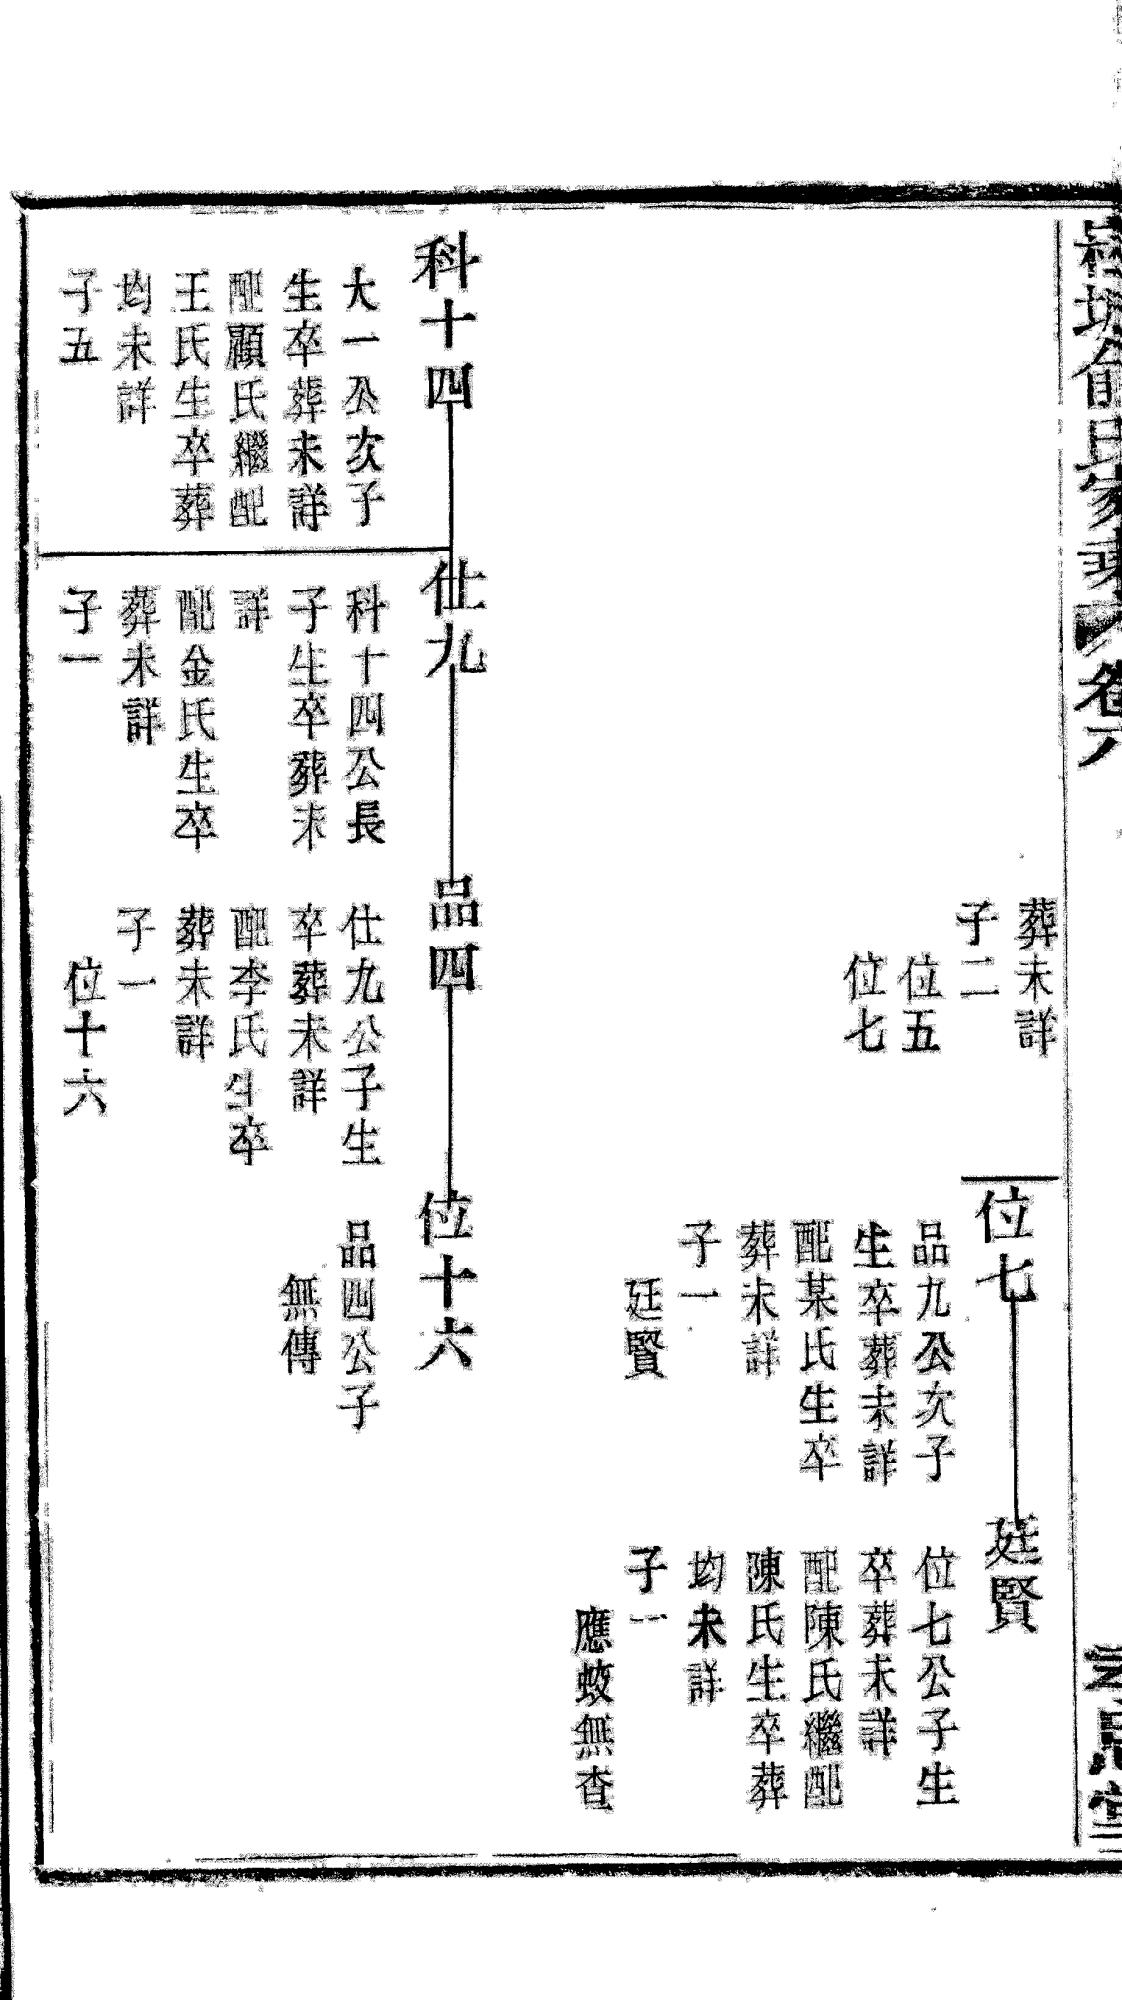 俞氏家乘
卷六
葬未詳
子二
位五
位七
位七
品九公次子
生卒葬未詳
配某氏生卒
葬未詳
子一
廷賢
廷賢
位七公子生
卒葬未詳
配陳氏繼配
陳氏生卒葬
均未詳
子一
應蛟無查
科十四
大一公次子
生卒葬未詳
配顧氏繼配
王氏生卒葬
均未詳
子五
仕九
科十四公長
子生卒葬未
詳
配金氏生卒
葬未詳
子一
品四
仕九公子生
卒葬未詳
配李氏生卒
葬未詳
子一
位十六
位十六
品四公子
無傳